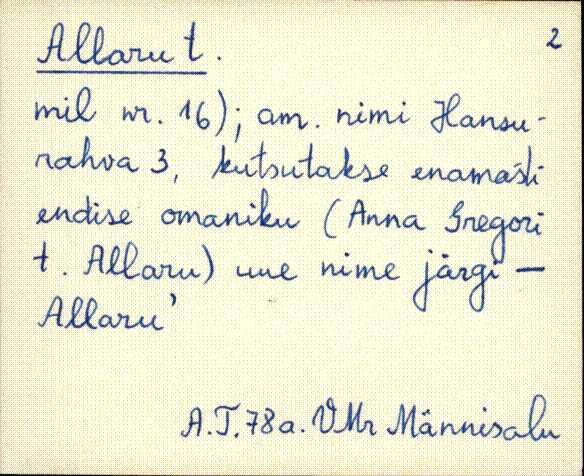 Allaru t. 2
mil nr. 16); am. nimi Hansu-
rahva 3, kutsutakse enamasti
endise omaniku (Anna Gregori
t. Allaru) uue nime järgi —
Allaru'
A.T. 78 a. VMr Männisalu